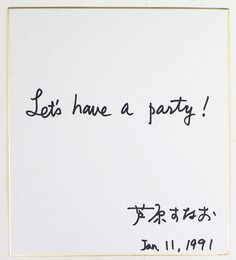 Let's have a party!
芦原すなお
Jan 11, 1991